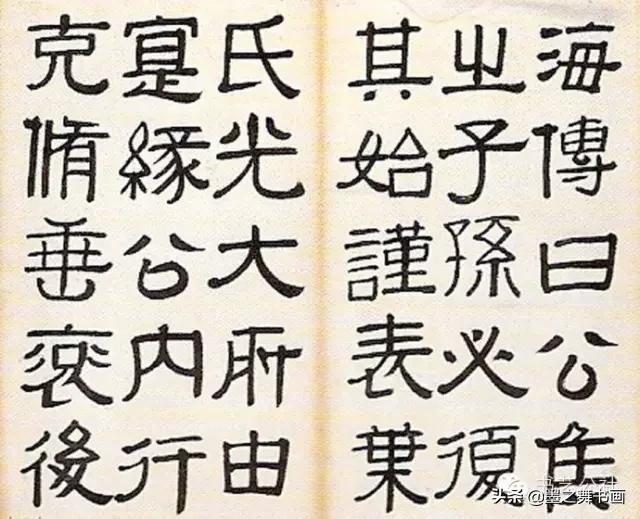 海傳曰公侯
之子孫必復
其始謹表葉
氏光大所由
寔緣公内行
克脩垂裕後
书艺公社
头条 @墨之舞书画